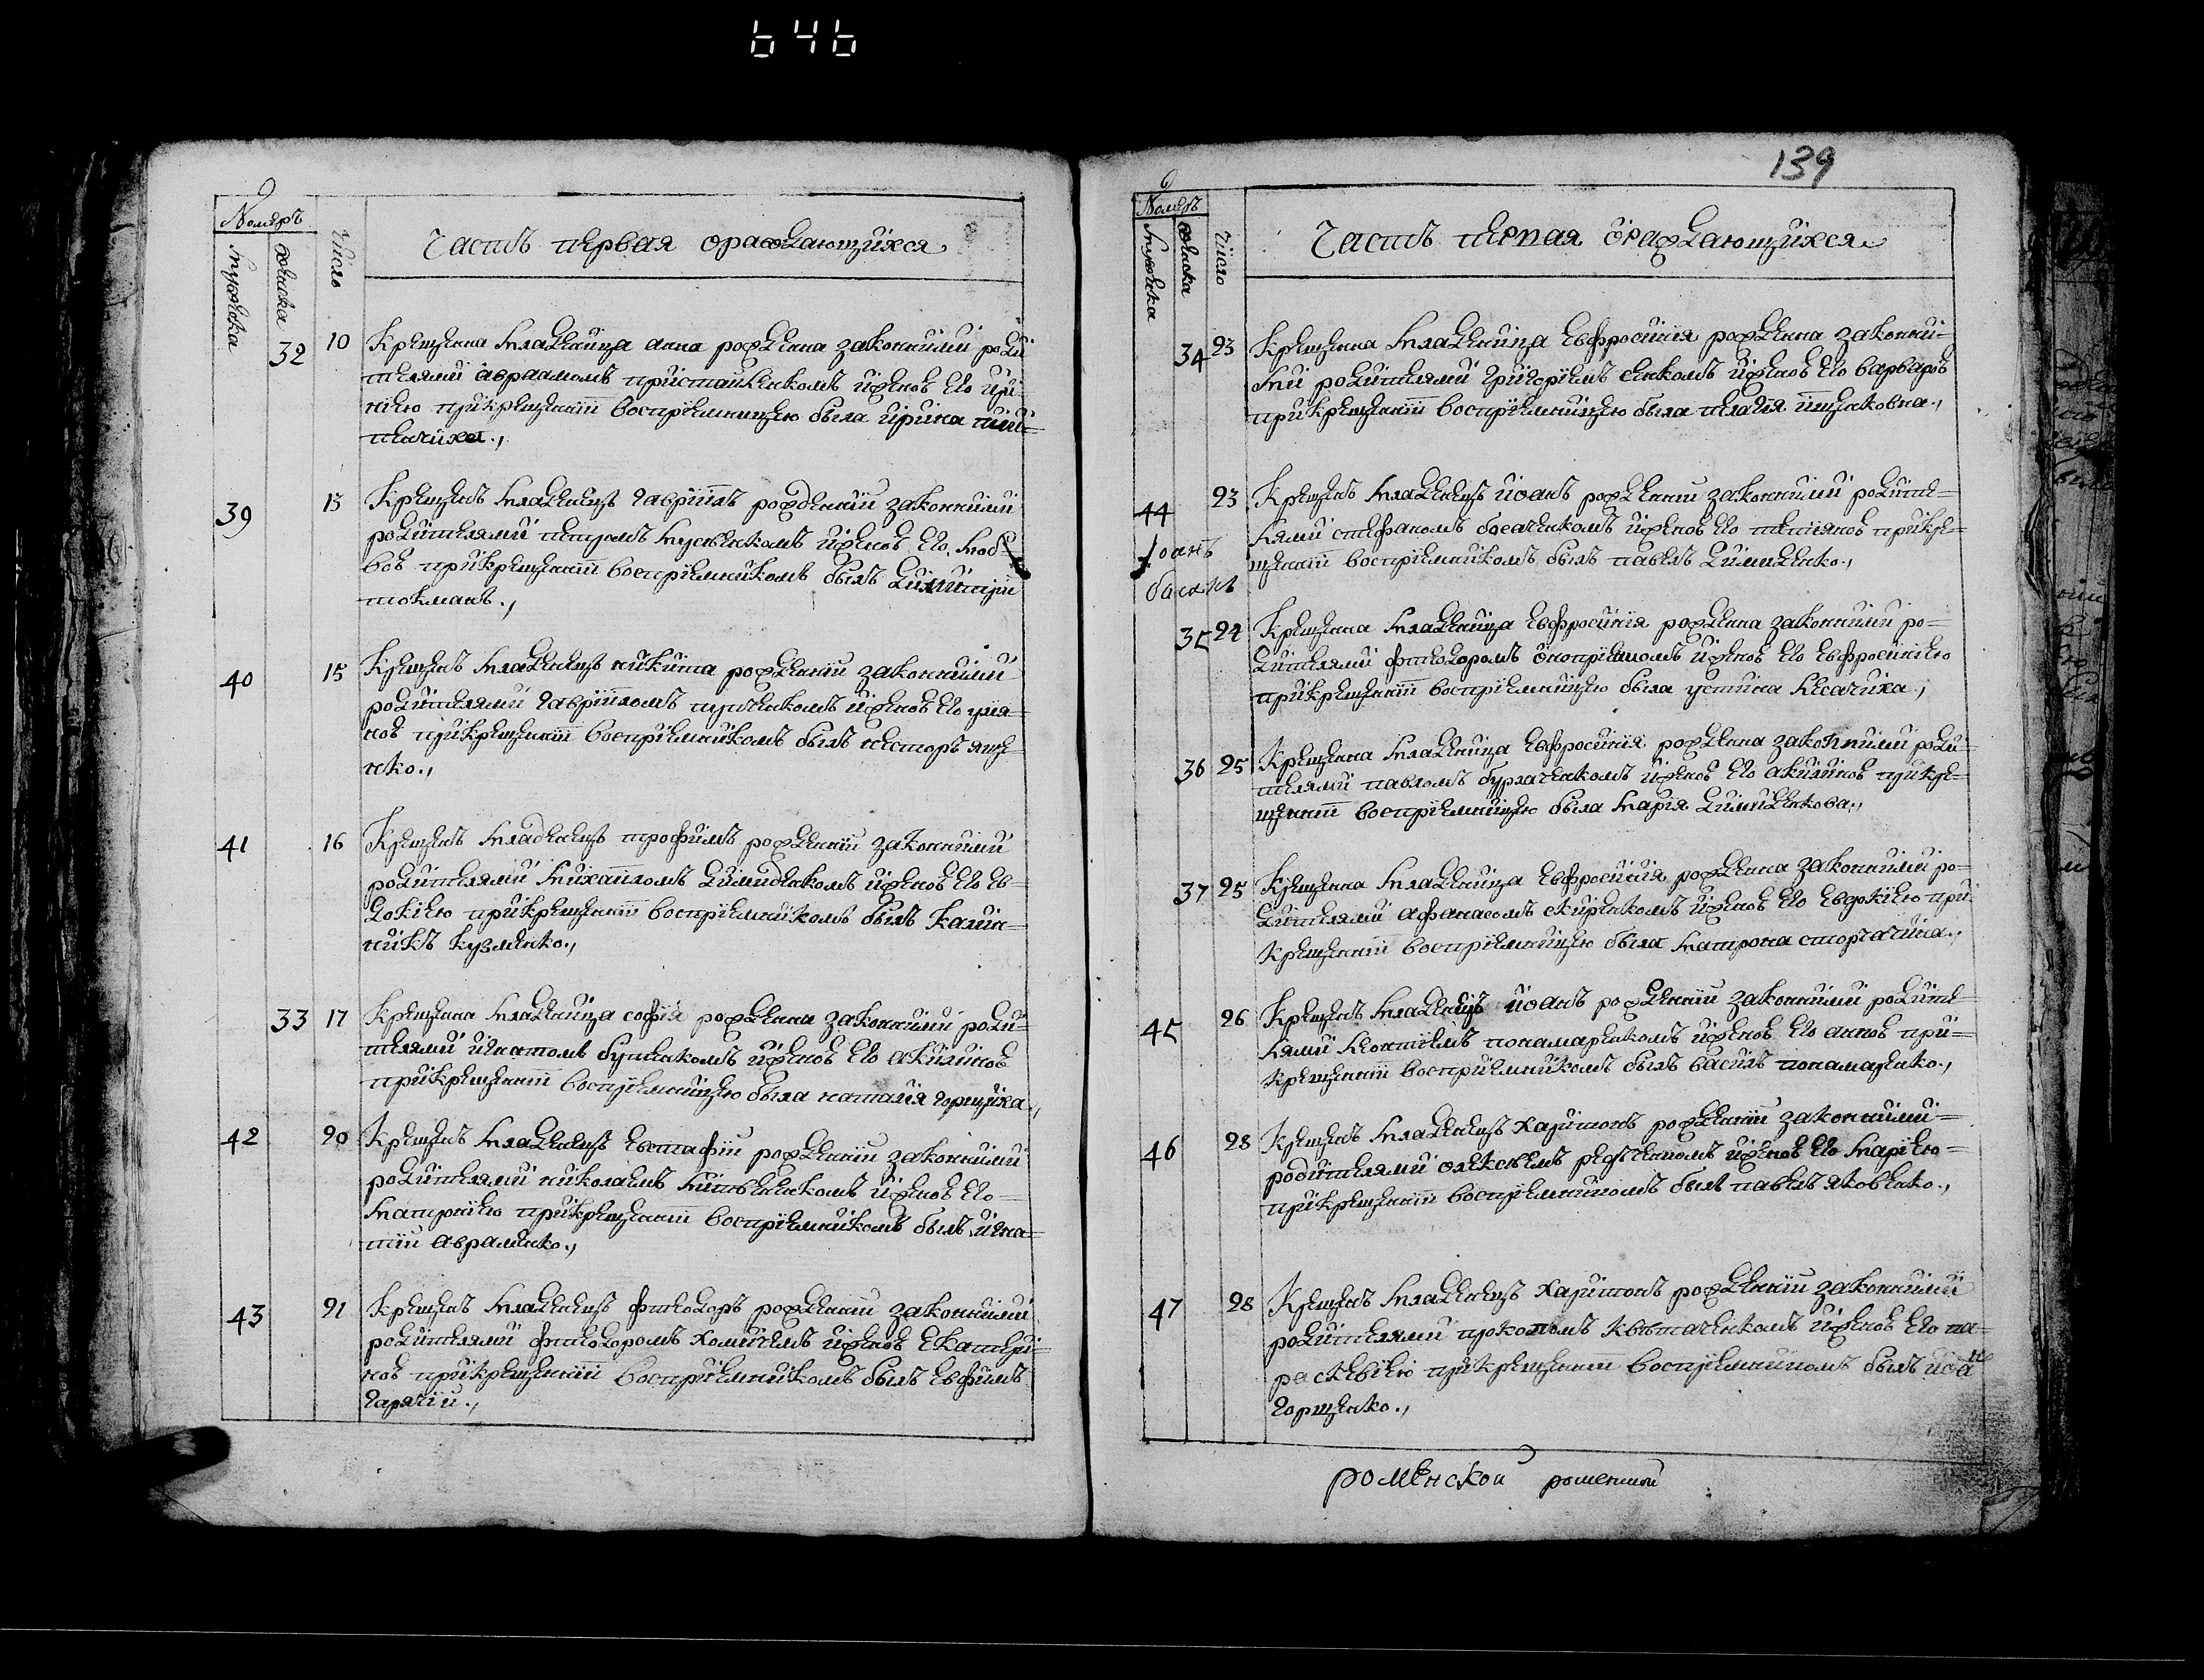 646
Номеръ
мужеска
женска
Число
Часть первая ораждающихся
32 10 Крещена младеница анна рождена законними роди
телями авраамомъ пристайченкомъ ижоноѣ его ири-
ною прикрещенїи воспрїемницею была ирина

39 13 Крещенъ младенецъ гаврїилъ рожденнїи законними
родителями петромъ мусѣенкомъ ижоноѣ его люб-
воѣ прикрещенїи воспрїемникомъ былъ димитрїи
токманъ.,
40 15 Крещенъ младенецъ никита рожденнїи законними
родителями гаврїиломъ ижоноѣ его уля-
ноѣ прикрещенїи воспрїемникомъ былъ несторъ яще-
нко.,
41 16 Крещенъ младенецъ трофимъ рожденнїи законними
родителями михаиломъ димиденкомъ ижоноѣ его ев-
докїею прикрещенїи воспрїемникомъ былъ калин-
никъ кузменко.,
33 17 Крещена младеница софїя рождена законними роди-
телями игнатомъ ижоноѣ его акилиноѣ
прикрещенїи воспрїемницею была наталїя горщиха.,
42 20 Крещенъ младенецъ евстафїи рожденнїи законними
родителями николаемъ ижоноѣ его
матроною прикрещенїи воспрїемникомъ былъ игна-
тїи авраменко.,
43 21 Крещенъ младенецъ фтеодоръ рожденнїи законними
родителями фтеодоромъ хомичемъ ижоноѣ екатери-
ноѣ прикрещенїи воспрїемникомъ былъ евфимъ
гарячїи.,
139
Номеръ
мужеска
женска
Число
Часть первая ораждающихся
34 23 Крещена младеница евфросинїя рождена законни-
ми родителями григорїемъ енкомъ ижоноѣ его варвароѣ
прикрещенїи воспрїемницею была пелагїя ищенковна.,
44 23 Крещенъ младенецъ иоанъ рожденнїи законними родите-
лями стефаномъ ижоноѣ его тетяноѣ прикре-
Іоанъ
щенїи воспрїемникомъ былъ павелъ димиденко.,
35 24 Крещена младеница евфросинїя рождена законними ро-
дителями фтеодоромъ онопрїенкомъ ижоноѣ его евфросинїею
прикрещенїи воспрїемницею была устина лисачиха.,
36 25 Крещена младеница евфросинїя рождена законними роди-
телями павломъ бурлаченкомъ ижоноѣ его акилиноѣ прикре-
щенїи воспрїемницею была марїя димиденкова.,
37 25 Крещена младеница евфросинїя рождена законними ро-
дителями афанасомъ ижоноѣ его евдокїею при
крещенїи воспрїемницею была матрона
45 26 Крещенъ младенецъ иоанъ рожденнїи законними родите-
лями леонтїемъ понамаренкомъ ижоноѣ его анноѣ при-
крещенїи воспрїемникомъ былъ василъ понамаренко.,
46 28 Крещенъ младенецъ харитонъ рожденнїи законними-
родителями олексѣемъ ижоноѣ его марїею-
прикрещенїи воспрїемникомъ былъ павелъ яковенко.,
47 28 Крещенъ младенецъ харитонъ рожденнїи законними
родителями прокопомъ ижоноѣ его па-
раскевїею прикрещенїи воспрїемникомъ былъ иоанъ
горщенко.,
роменской